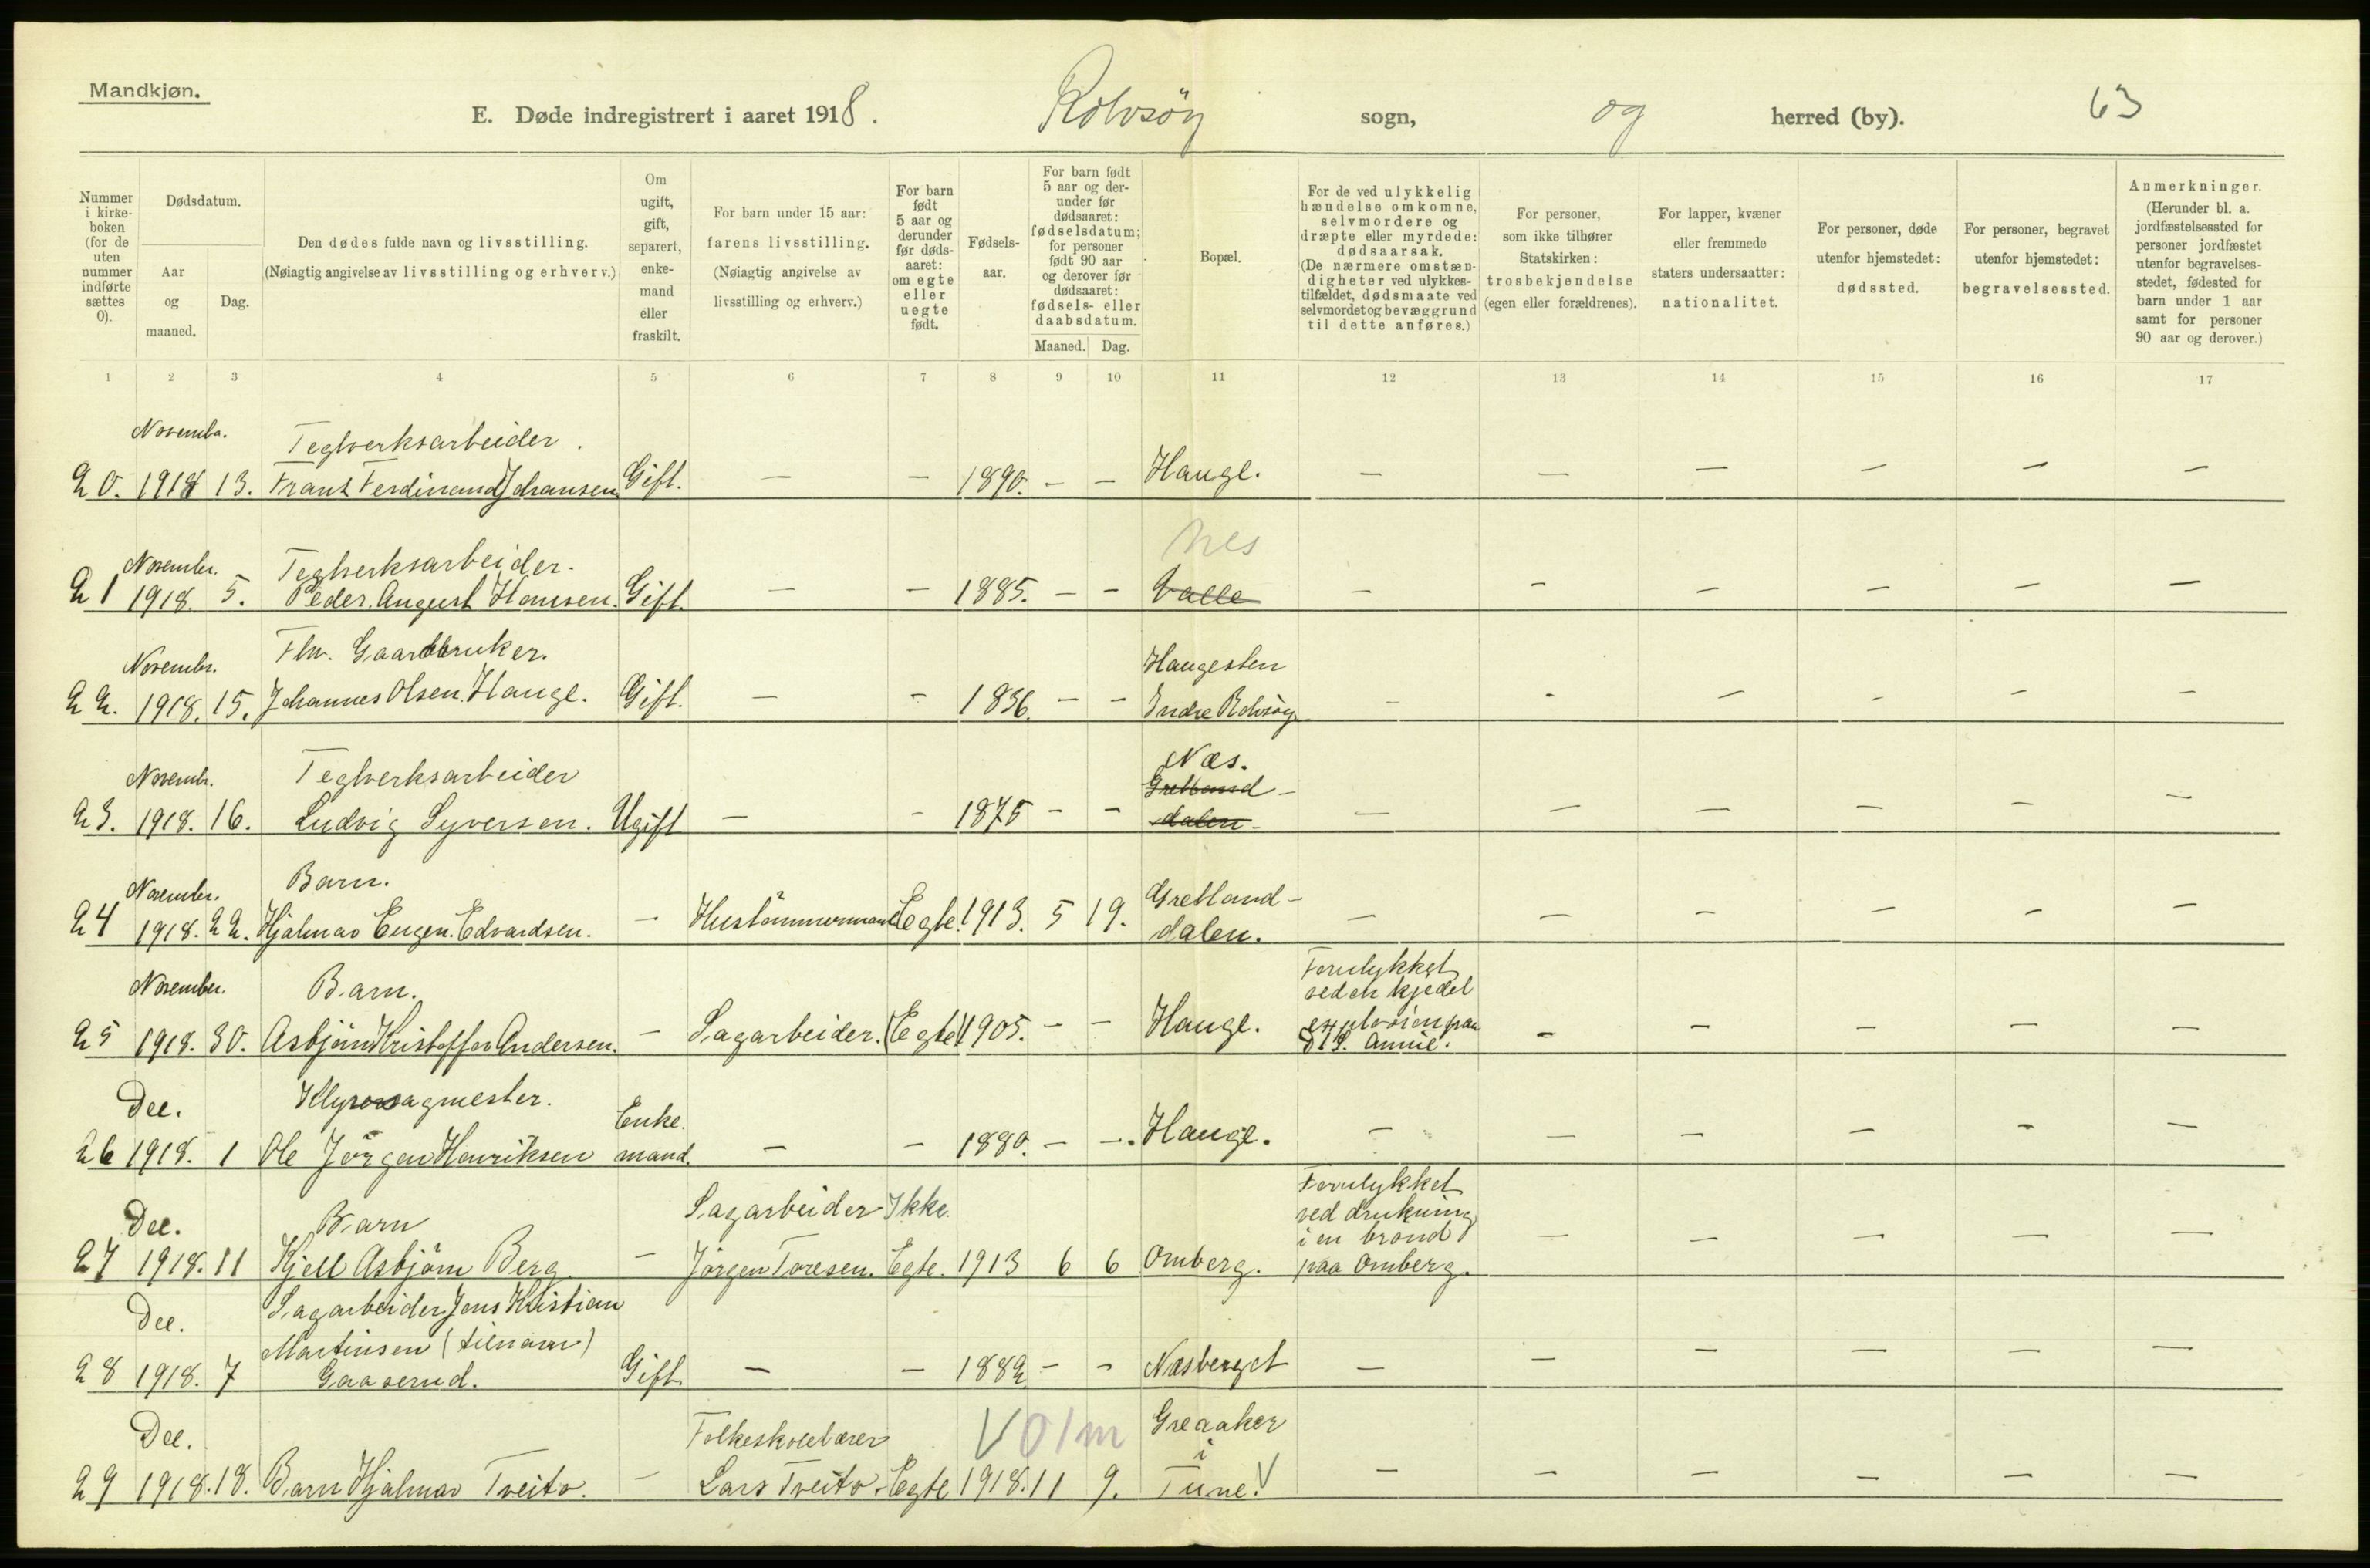 Mandkjøn.
E. Døde indregistrert i aaret 1918. Rolvsöy sogn, og herred (by). 63
Nummer i kirke-boken (for de uten nummer indførte sættes 0).
Dødsdatum.
Aar og maaned.
Dag.
Den dødes fulde navn og livsstilling.
(Nøiagtig angivelse av livsstilling og erhverv.)
Om ugift, gift, separert, enke-mand eller fraskilt.
For barn under 15 aar:
farens livsstilling.
(Nøiagtig angivelse av
livsstilling og erhverv.)
For barn født 5 aar og derunder før døds-aaret: om egte eller uegte født.
Fødsels-aar.
For barn født 5 aar og der-under før dødsaaret: fødselsdatum; for personer født 90 aar og derover før dødsaaret: fødsels- eller daabsdatum.
Maaned. Dag.
Bopæl.
For de ved ulykkelig hændelse omkomne, selvmordere og dræpte eller myrdede: dødsaarsak. (De nærmere omstæn-digheter ved ulykkes-tilfældet, dødsmaate ved selvmordet og bevæggrund til dette anføres.)
For personer, som ikke tilhører Statskirken: trosbekjendelse (egen eller forældrenes).
For lapper, kvæner eller fremmede staters undersaatter: nationalitet.
For personer, døde utenfor hjemstedet: dødssted.
For personer, begravet utenfor hjemstedet: begravelsessted.
Anmerkninger. (Herunder bl. a. jordfæstelsessted for personer jordfæstet utenfor begravelses-stedet, fødested for barn under 1 aar samt for personer 90 aar og derover.)
1 2 3 4 5 6 7 8 9 10 11 12 13 14 15 16 17
Novembr. Teglverksarbeider.
20. 1918 13. Frant Ferdinand Johansen Gift. — — 1890. — — Hauge. — — — — — —
Novembr. Teglverksarbeider. Nes
21 1918. 5. Peder August Hansen. Gift. — — 1885. — — Valle — — — — — —
Novembr. Fhv. Gaardbruker. Haugesten
22. 1918. 15. Johannes Olsen Hauge. Gift. — — 1836. — — Indre Rolvsöy — — — — — —
Novembr. Teglverksarbeider Næs.
Gretland-
23. 1918. 16. Ludvig Syversen. Ugift — — 1875 — — dalen — — — — — —
Novembr. Barn. Gretland-
24 1918. 22. Hjalmar Eugen Edvardsen. — Hustömmermand Egte. 1913. 5 19. dalen. — — — — — —
November. Barn. Forulykket
ved en kjedel
25 1918. 30. Asbjörn Kristoffer Andersen. — Sagarbeider. (Egte) 1905. — — Hauge. explosion paa — — — — —
D/S. Annie.
Dec. Klyversagmester. Enke.
26 1918. 1 Ole Jörgen Henriksen mand. — — 1880. — — Hauge. — — — — — —
Dec. Barn Sagarbeider Ikke Forulykket
ved drukning
i en brönd
27 1918. 11 Kjell Asbjörn Berg — Jörgen Toresen. Egte. 1913 6 6 Omberg. paa Omberg. — — — — —
Dec. Sagarbeider Jens Kristian
Martinsen (tilnavn)
28 1918. 7 Gaaserud. Gift — — 1882 — — Næsberget — — — — — —
Dec. Folkeskolelærer V 0/m Greaaker
i
29 1918. 18. Barn Hjalmar Tveito. — Lars Tveito. Egte 1918. 11 9. Tune. V — — — — — —